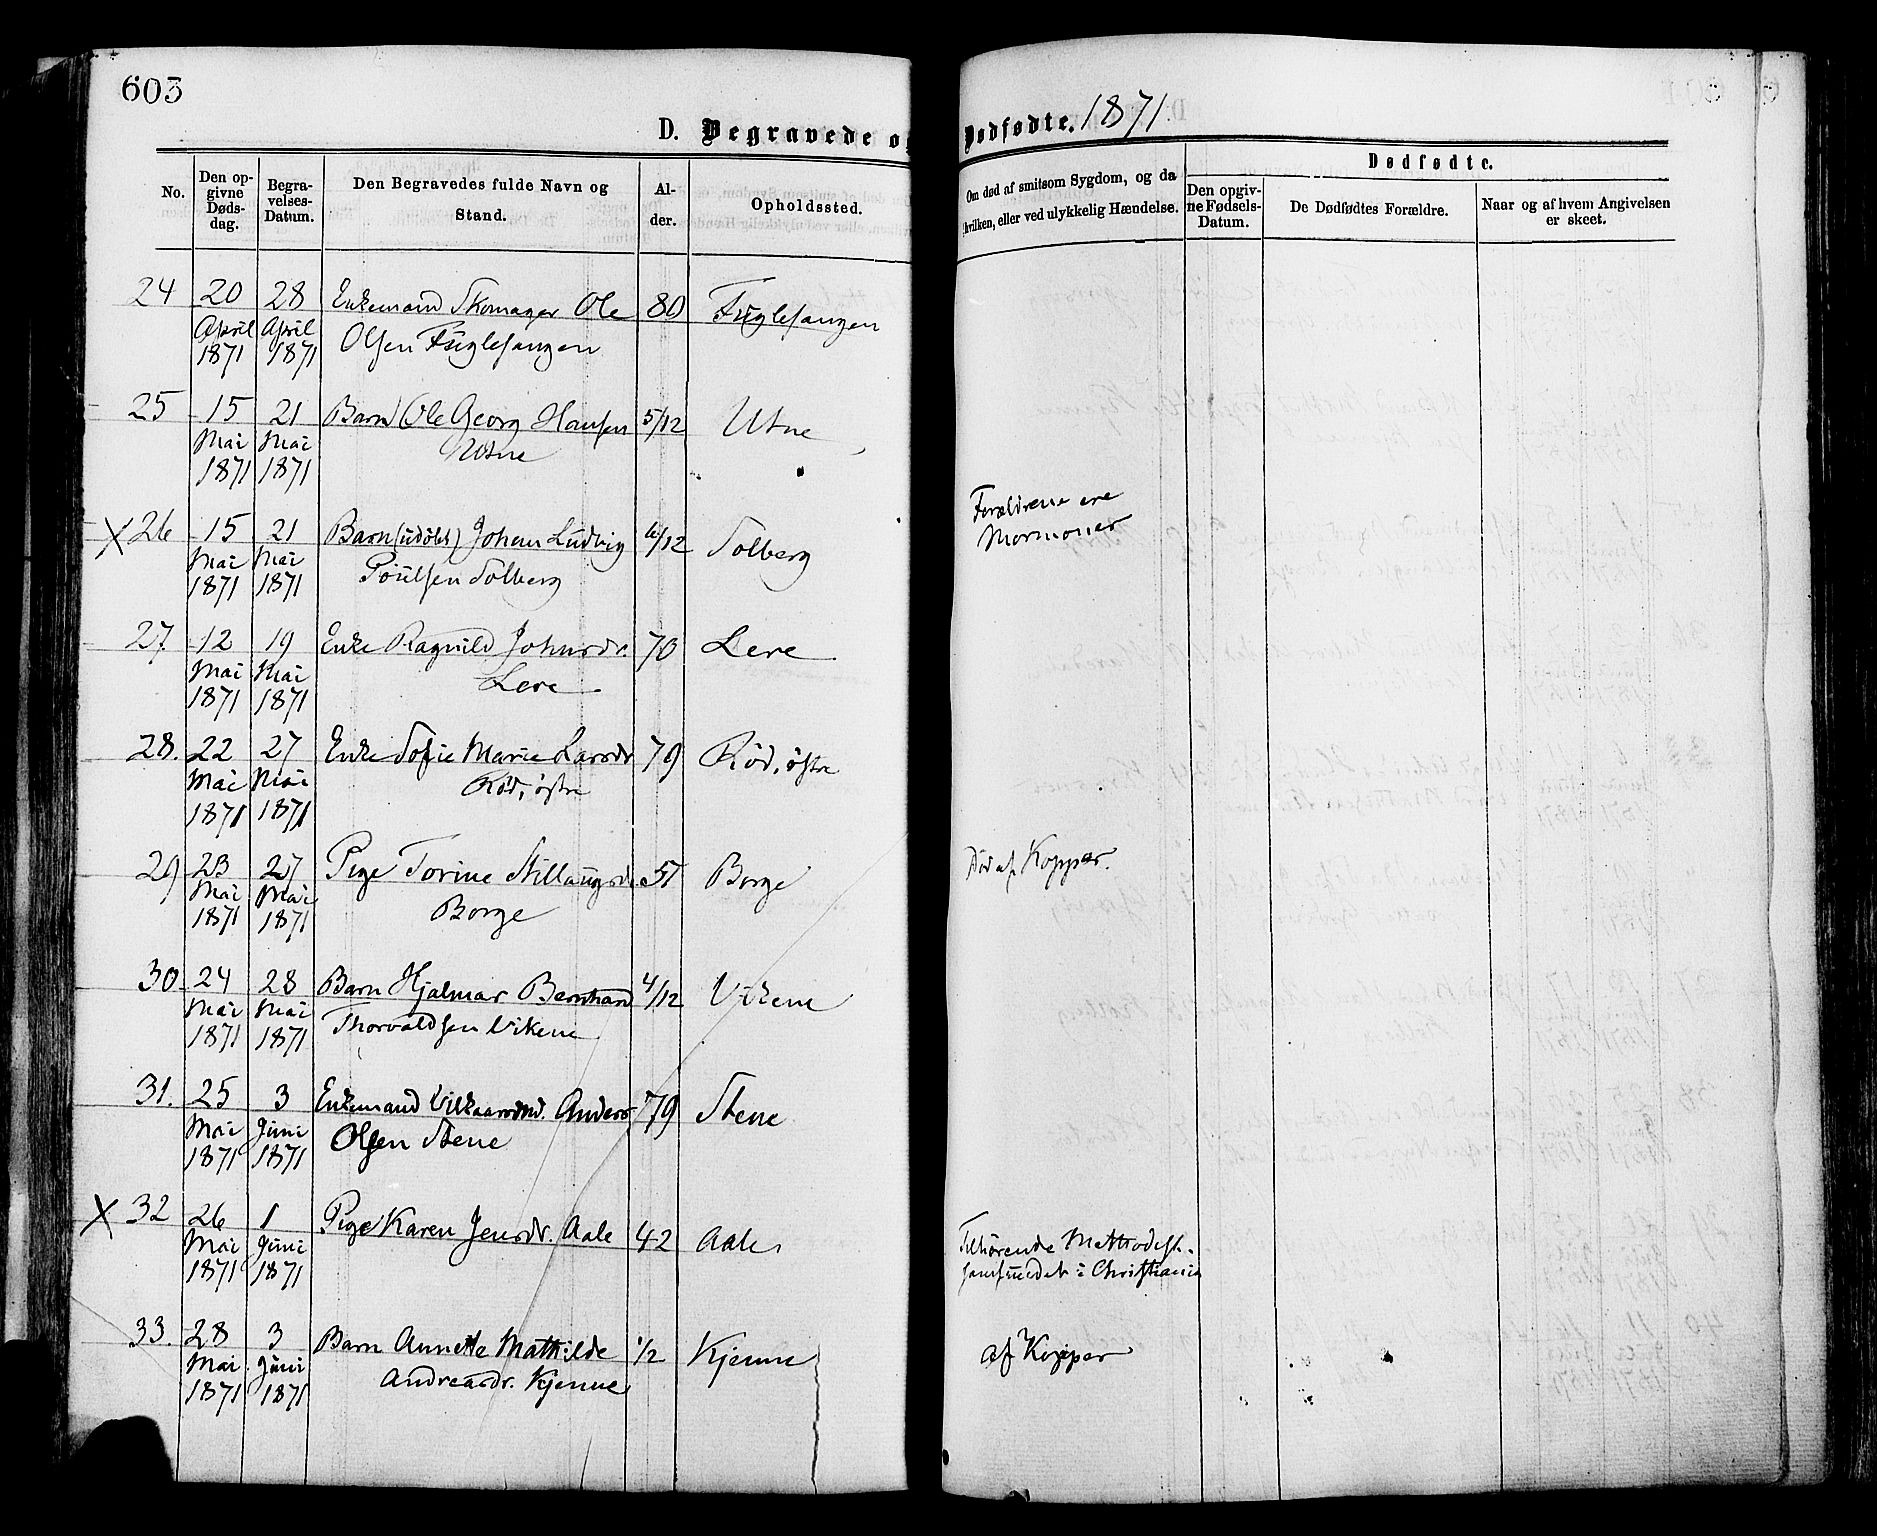 603
D. Begravede og Dødfødte. 1871.
No.
Den opgivne Dødsdag.
Begravelses-Datum.
Den Begravedes fulde Navn og Stand.
Alder.
Opholdssted.
Om død af smitsom Sygdom, og da
hvilken, eller ved ulykkelig Hændelse.
Dødfødte.
Den opgivne Fødsels-Datum.
De Dødfødtes Forældre.
Naar og af hvem Angivelsen er skeet.
24 20 28 Enkemand Skomager Ole 80 Fuglesangen
April April Olsen Fuglesangen
1871 1871
25 15 21 Barn Ole Georg Hansen 5/12 Utne
Mai Mai Utne
1871 1871
X 26 15 21 Barn (udøbt) Johan Ludvig 6/12 Solberg Forældrene ere
Mai Mai Poulsen Solberg Mormoner
1871 1871
27. 12 19 Enke Ragnild Johnsdr. 70 Lere
Mai Mai Lere
1871 1871
28. 22 27 Enke Sofie Marie Larsdr 79 Rød, østre
Mai Mai Rød, østre
1871 1871
29 23 27 Pige Torine Stillaugsdr 51 Borge Død af Kopper.
Mai Mai Borge
1871 1871
30. 24 28 Barn Hjalmar Bernhard 4/12 Vikene
Mai Mai Thorvaldsen Vikene
1871 1871
31. 25 3 Enkemand Vilkaarsmd. Anders 79 Stene
Mai Juni Olsen Stene
1871 1871
X 32 26 1 Pige Karen Jensdr. Aale 42 Aale Tilhørende Methodist-
Mai Juni samfundet i Christiania
1871 1871
33. 28 3 Barn Annette Mathilde 1/2 Kjenne af Kopper
Mai Juni Andreasdr. Kjenne
1871 1871